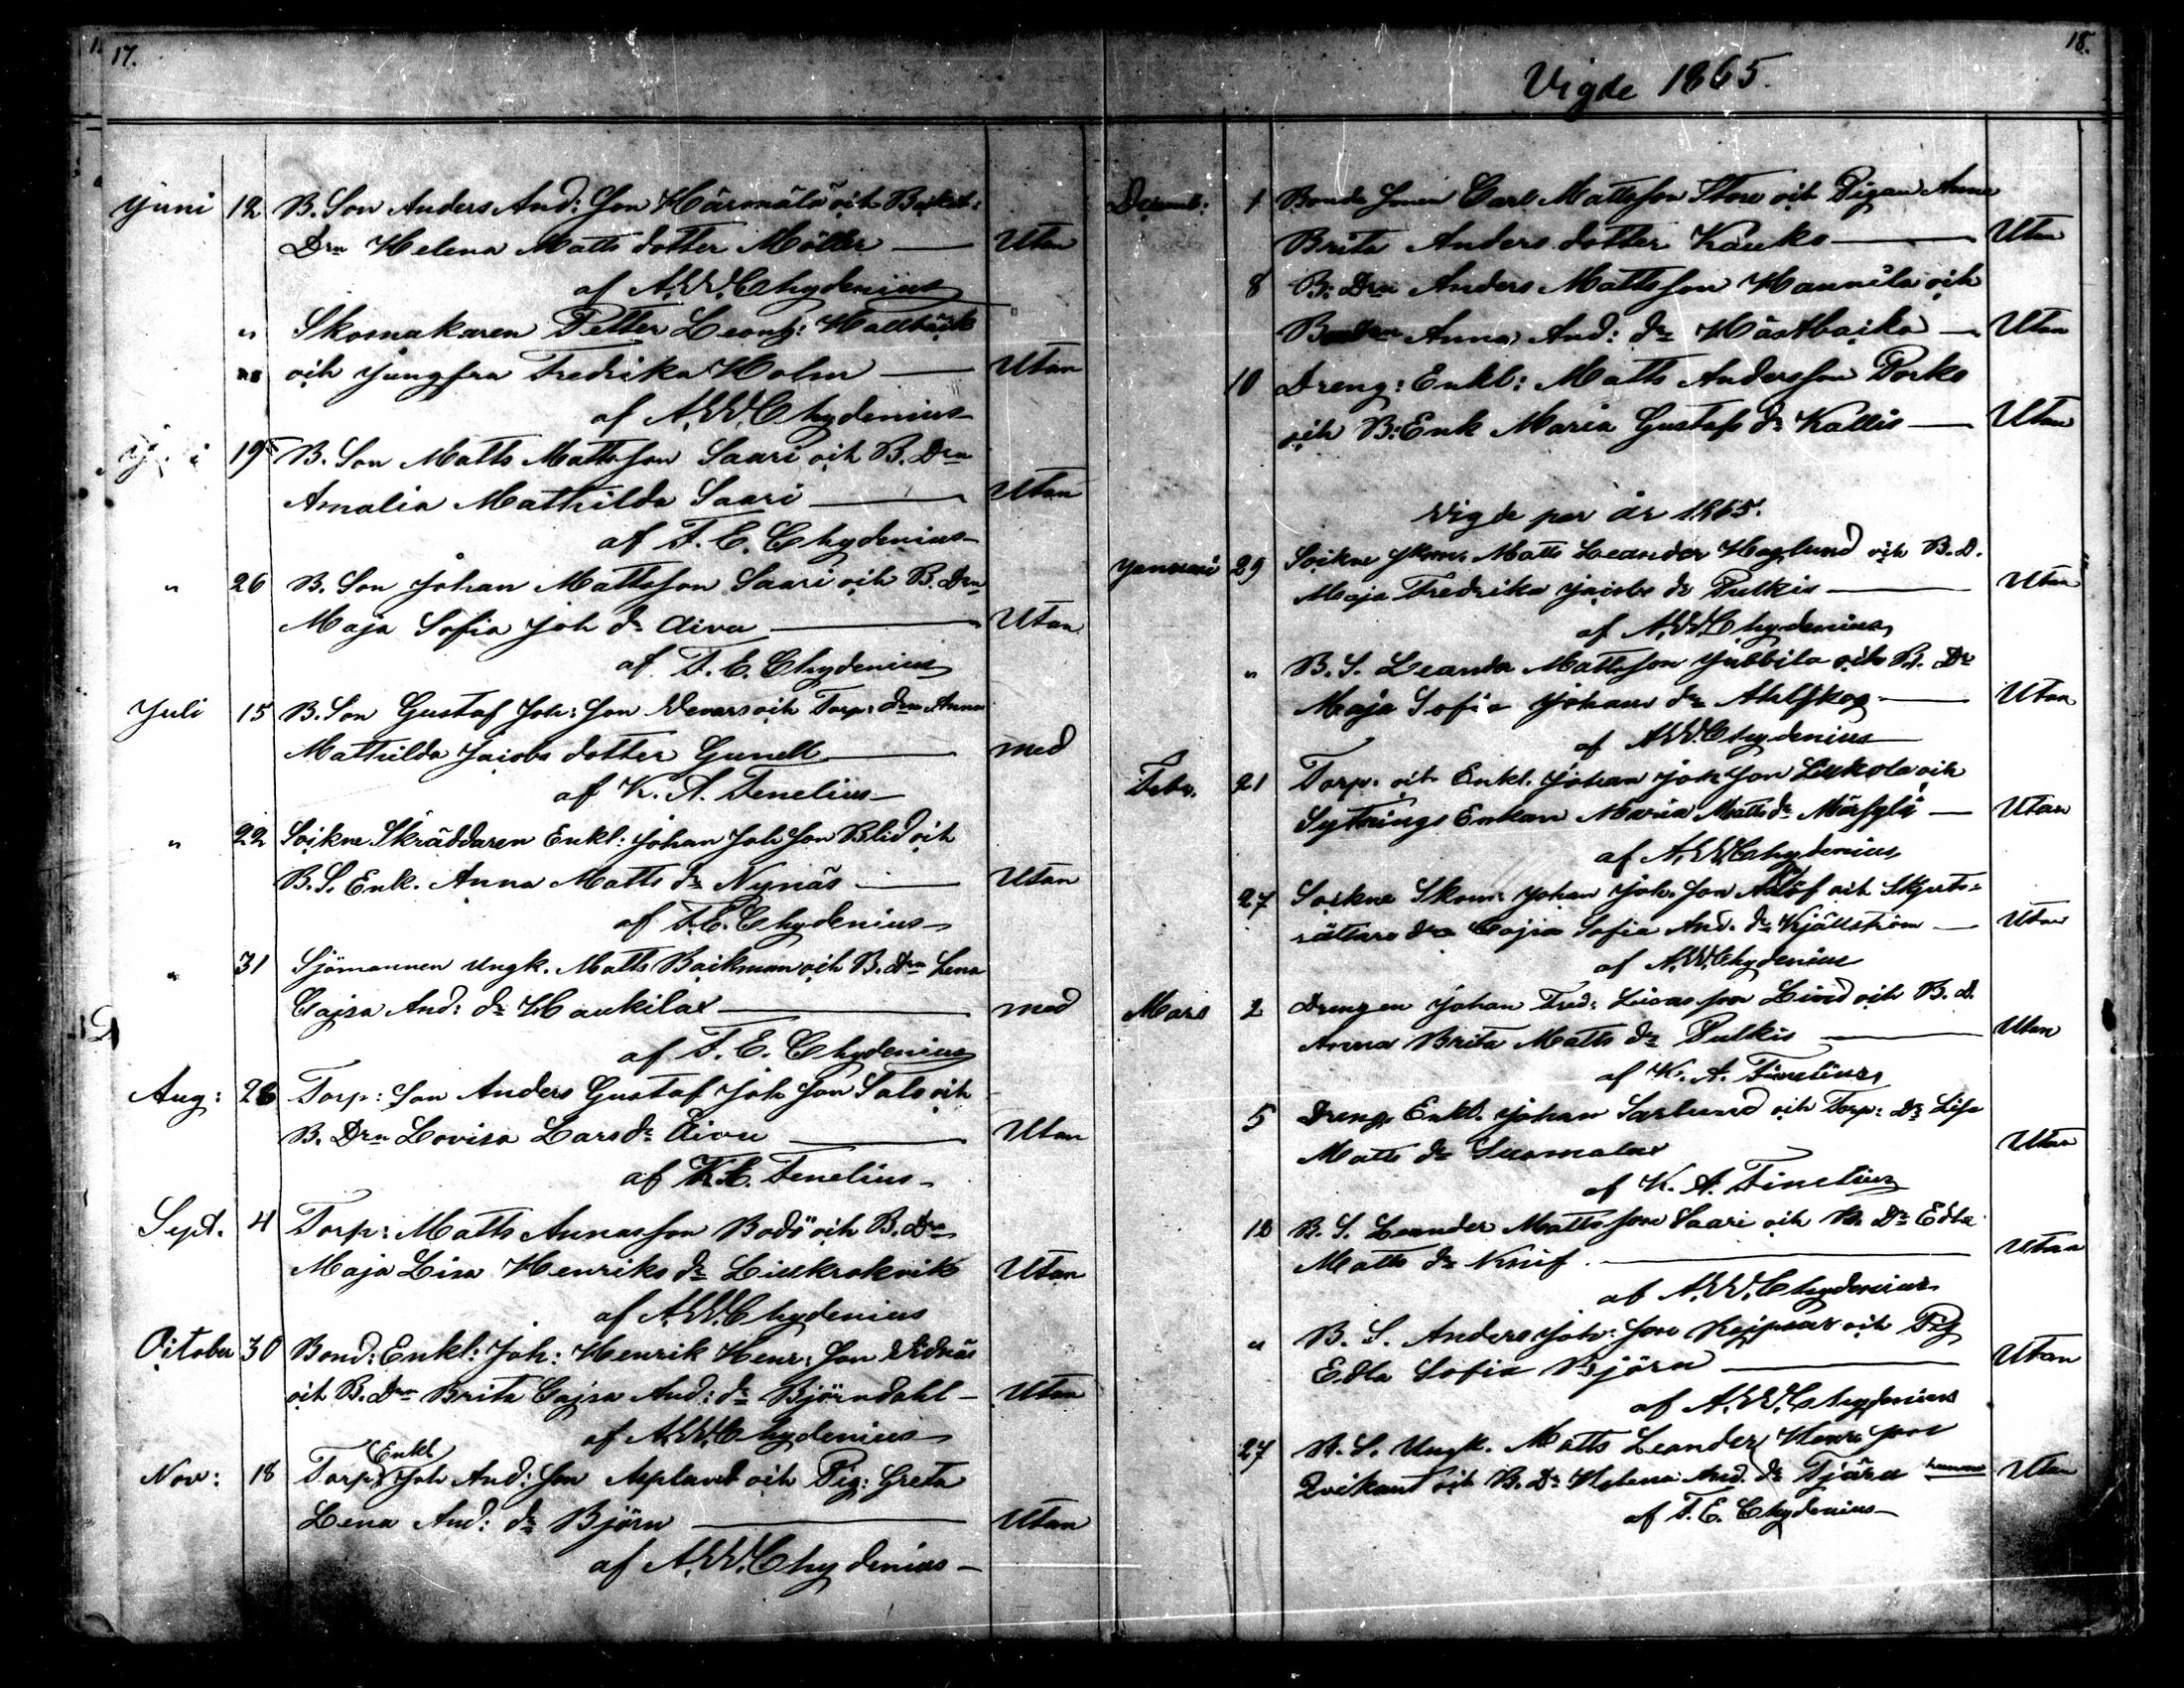 17.
Juni 12 B. Son Anders And: Son Härmälä och
Drn Helena Matts dotter Möller — Utan
af A.W. Chydenius
" Skomakaren Petter Leonh: Hallbäck
och Jungfru Fredrika Holm — Utan
af A.W. Chydenius
19 B. Son Matts Mattsson Saari och B. Drn
Amalia Mathilda Saari — Utan
af F. E. Chydenius
" 26 B. Son Johan Mattsson Saari och B. Drn
Maja Sofia Joh dr Aivu — Utan
af F. E. Chydenius
Juli 15 B. Son Gustaf Joh: Son och Torp: drn Anna
Mathilda Jacobs dotter Gunell — med
af K. A. Fenelius
" 22 Sockne Skräddaren Enkl: Johan Joh Son Blid och
B. S. Enk. Anna Matts dr Nynäs — Utan
af F. E. Chydenius
" 31 Sjömannen Ungk. Matts Backman och B. Drn Lena
Cajsa And: dr Haukilax — med
af F. E. Chydenius
Aug: 28 Torp: Son Anders Gustaf Joh Son Salo och
B. Drn Lovisa Lars dr Aivu — Utan
af K. A. Fenelius
Sept. 4 Torp: Matts Annasson Bodö och B. Drn
Maja Lisa Henriks dr — Utan
af A.W. Chydenius
October 30 Bond: Enkl: Joh: Henrik Henr: Son Widnäs
och B. Drn Brita Cajsa And: dr Björndahl — Utan
af A.W. Chydenius
Enkl
Nov: 18 Torp: Joh And: Son Asplund och Pig: Greta
Lena And: dr Björn — Utan
af A.W. Chydenius
18.
Vigde 1865.
Decemb: 1 Bonde Sonen Carl Mattsson Store och Pigan Anna
Brita Anders dotter Kauko — Utan
8 B: Drn Anders Mattsson Hannila och
Anna And: dr Hästbacka — Utan
10 Dreng: Enkl: Matts Andersson Porko
och B: Enk Maria Gustafs dr Kallis — Utan
Vigde per år 1865.
Januari 29 Sockne Skom. Matts Leander Haglund och B. D.
Maja Fredrika Jacobs dr Pulkis — Utan
af A.W. Chydenius
" B. S. Leander Mattsson Jubbila och B. Dr
Maja Sofia Johans dr Ahlskog — Utan
af A.W. Chydenius
Febr. 21 Torp. och Enkl. Johan Joh Son och
Sytnings Enkan Maria Matts dr — Utan
af A.W. Chydenius
27 Sockne Skom. Johan Joh. Son och Skjuts-
rättare drn Cajsa Sofia And. dr Kjällström — Utan
af A.W. Chydenius
Mars 2 Drengen Johan Fred: Lucasson Lind och B. D.
Anna Brita Matts dr Pulkis — Utan
af K. A. Fenelius
5 Dreng. Enkl. Johan Sarlund och Torp: Dr Lisa
Matts dr Suomalax Utan
af K. A. Fenelius
18 B. S. Leander Mattsson Saari och B. Dr Edla
Matts dr Knif. — Utan
af A.W. Chydenius
" B. S. Anders Joh. Son och Pig
Edla Sofia Björn — Utan
af A.W. Chydenius
27 B. S. Ungk. Matts Leander Henr: Son
Qvikant och B. Dr Helena And. dr Tjäru — Utan
af F. E. Chydenius